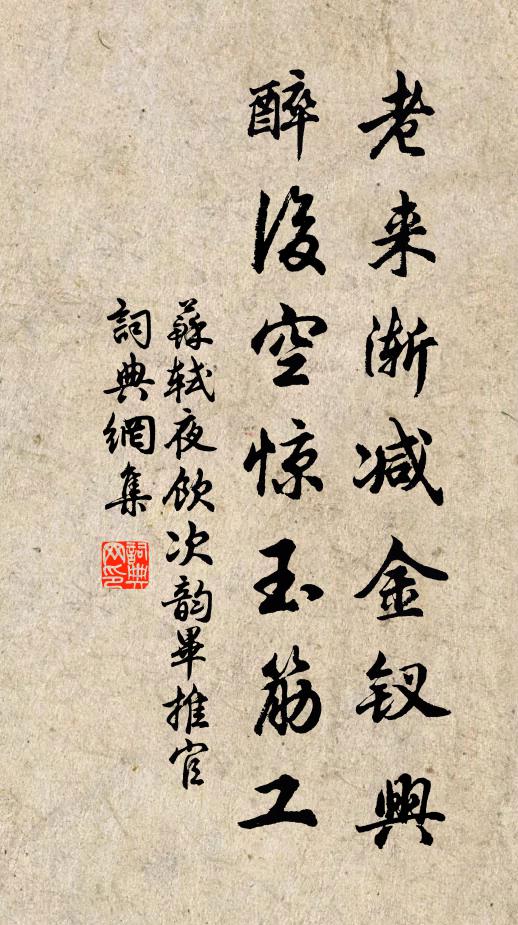 老来渐减金钗興
醉後空惊玉筋工
蘇軾夜飲次韵畢推官
詞典網集
詞典
网印